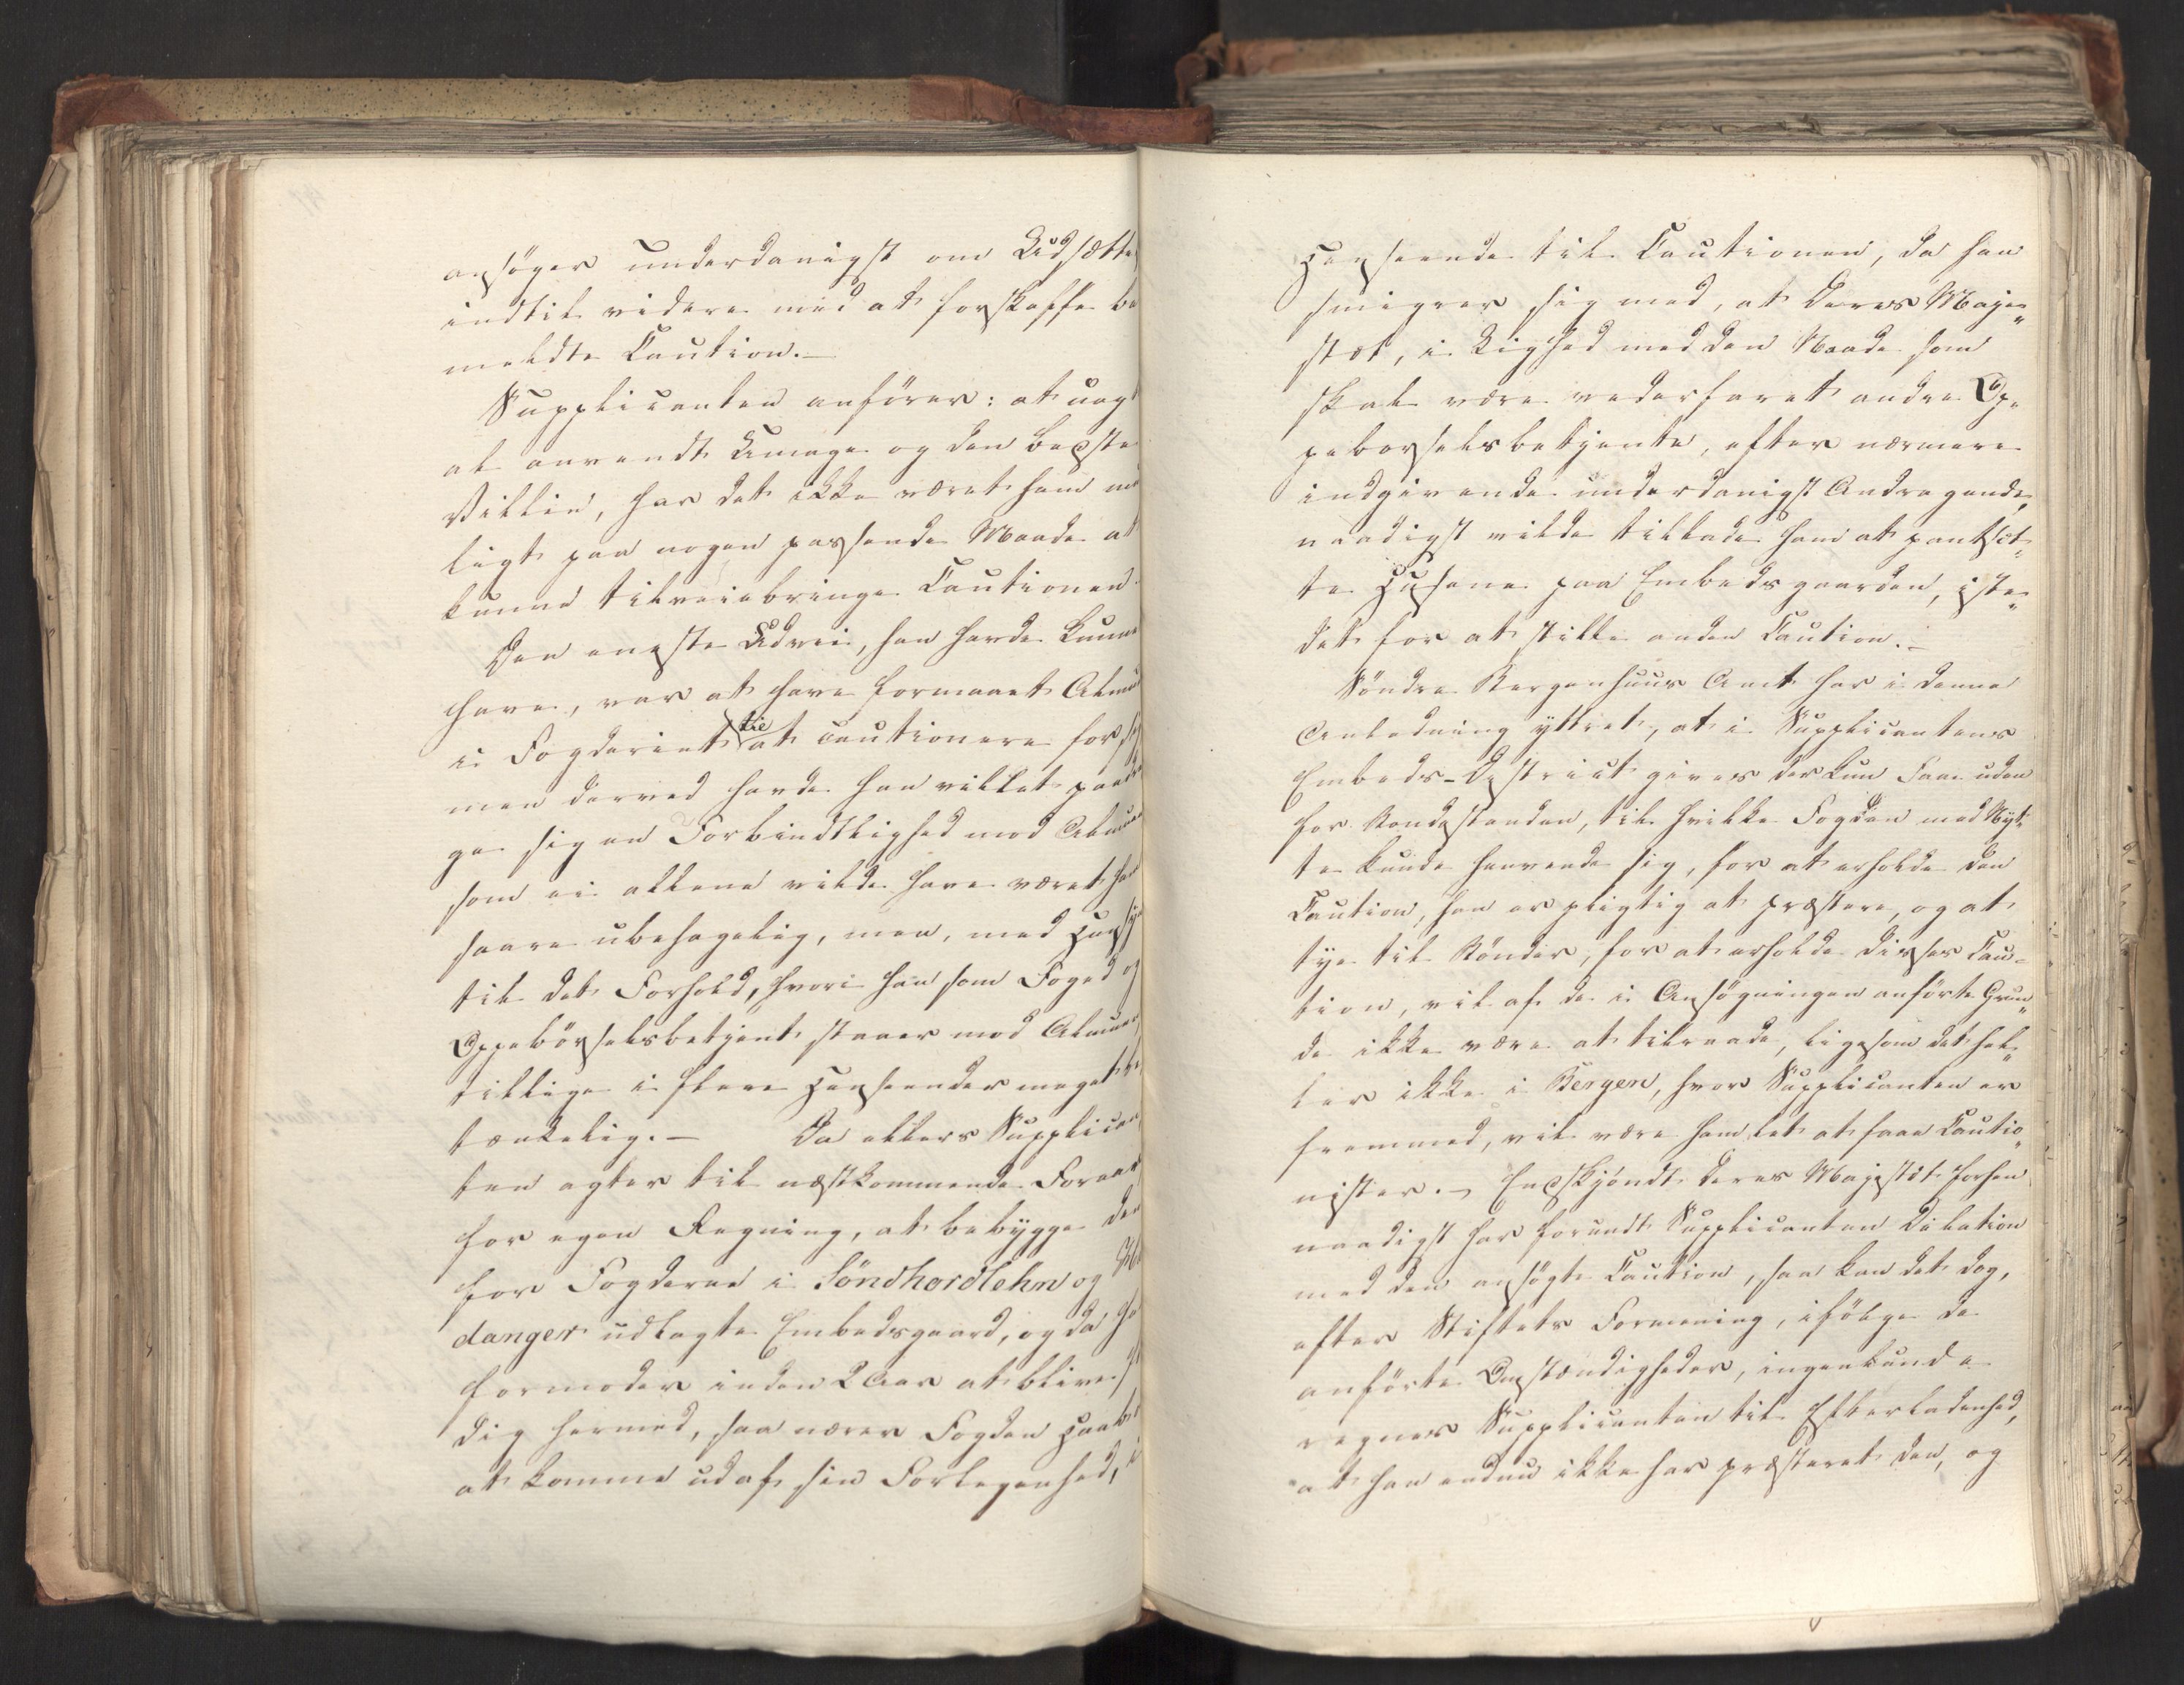 ansöger underdanigst om Udsættel
indtil videre med at forskaffe be
meldte Caution.—
Supplicanten anförer: at uagt
al anvendt Umage og den bedste
Villie, har det ikke været ham mu
ligt paa nogen passende Maade at
kunne tilveiebringe Cautionen.
Den eneste Udvei, han havde kunne
have, var at have formaaet Almu
i Fogderiet til at cautionere for sig
men derved havde han villet paadra
ge sig en Forbindtlighed mod Almue
som ei allene vilde have været ham
saare ubehagelig, men, med Hensyn
til det Forhold, hvori han som Foged og
Oppebörselsbetjent staaer mod Almuen,
tillige i flere Henseender meget be
tænkelig.— Da ellers Supplican
ten agter til næstkommende Foraar
for egen Regning, at bebygge den
for Fogderne i Söndhordlehn og Har
danger udlagte Embedsgaard, og da han
formoder inden 2 Aar at blive fær
dig hermed, saa nærer Fogden Haab
at komme ud af sin Forlegenhed, i
Henseende til Cautionen, da han
smigrer sig med, at Deres Maje„
stæt, i Lighed med den Naade som
skal være vederfaret andre Op„
pebørselsbetjente, efter nærmere
indgivende underdanigst Andragende,
naadigst vilde tillade ham at pantsæt„
te Husene paa Embedsgaarden, iste„
det for at stille anden Caution.—
Söndre Bergenhuus Amt har i denne
Anledning yttret, at i Supplicantens
Embeds-District gives der kun Faae uden
for Bondestanden, til hvilke Fogden med Nyt„
te kunde henvende sig, for at erholde den
Caution, han er pligtig at præstere, og at
tye til Bönder, for at erholde disses Cau„
tion, vil af de i Ansögningen anförte Grun„
de ikke være at tilraade, ligesom det hel„
ler ikke i Bergen, hvor Supplicanten er
fremmed, vil være ham let at faae Cautio„
nister.— Endskjöndt Deres Majestæt forhen
naadigst har forundt Supplicanten Dilation
med den ansögte Caution, saa kan det dog,
efter Stiftets Formening, ifölge de
anförte Omstændigheder, ingenlunde
regnes Supplicanten til Efterladenhed,
at han endnu ikke har præsteret den, og